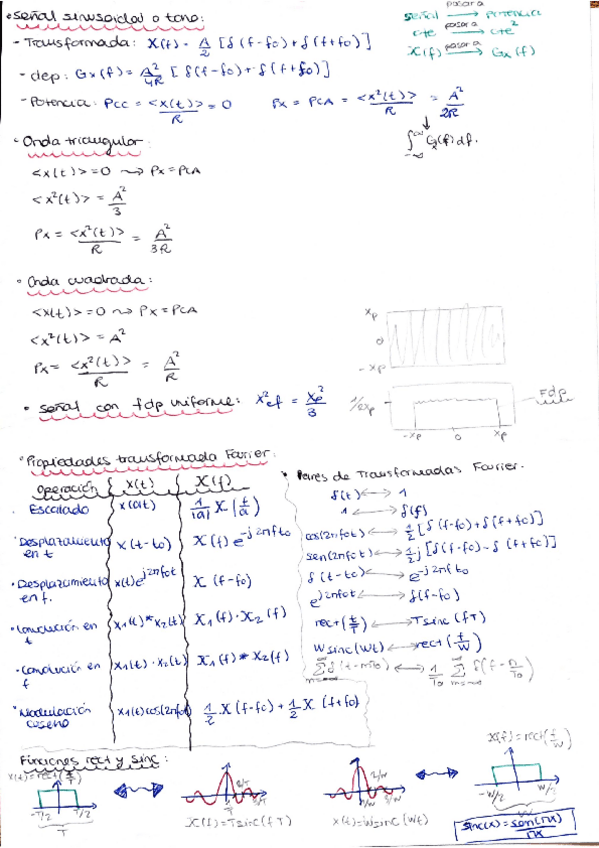 • Señal sinusoidal o tono:
señal pasar a → potencia
cte pasar a → cte²
X(f) pasar a → Gx(f)
- Transformada: X(f) = A/2 [δ(f-fo) + δ(f+fo)]
- dep: Gx(f) = A²/4R [δ(f-fo) + δ(f+fo)]
- Potencia: PCC = <x(t)>/R = 0 Px = PCA = <x²(t)>/R = A²/2R
∫ Gx(f) df.
• Onda triangular:
<x(t)> = 0 ⇝ Px = PCA
<x²(t)> = A²/3
Px = <x²(t)>/R = A²/3R
• Onda cuadrada:
<x(t)> = 0 ⇝ Px = PCA
<x²(t)> = A²
Px = <x²(t)>/R = A²/R
xp
0
-xp
• señal con fdp uniforme: x²ef = xp²/3
1/2xp
Fdp
-xp 0 xp
• Propiedades transformada Fourier:
Operación x(t) X(f)
· Escalado x(at) 1/|a| X(f/a)
• Desplazamiento en t x(t-to) X(f) e^-j2πfto
• Desplazamiento en f. x(t)e^j2πfot X(f-fo)
• Convolución en t x1(t)*x2(t) X1(f)·X2(f)
• Convolución en f x1(t)·x2(t) X1(f)*X2(f)
• Modulación coseno x1(t)cos(2πfot) 1/2 X(f-fo) + 1/2 X(f+fo)
• Pares de Transformadas Fourier.
δ(t) ↔ 1
1 ↔ δ(f)
cos(2πfot) ↔ 1/2 [δ(f-fo) + δ(f+fo)]
sen(2πfot) ↔ 1/2j [δ(f-fo) - δ(f+fo)]
δ(t-to) ↔ e^-j2πfto
e^j2πfot ↔ δ(f-fo)
rect(t/T) ↔ Tsinc(fT)
Wsinc(Wt) ↔ rect(f/W)
∞ Σ m=-∞ δ(t-mTo) ↔ 1/To ∞ Σ m=-∞ δ(f-n/To)
Funciones rect y sinc:
x(t)=rect
-T/2 T/2
T
X(f)=Tsinc(fT)
x(t)=Wsinc(Wt)
X(f)=rect(f/W)
-W/2 W/2
W
sinc(x) = sen(πx)/πx